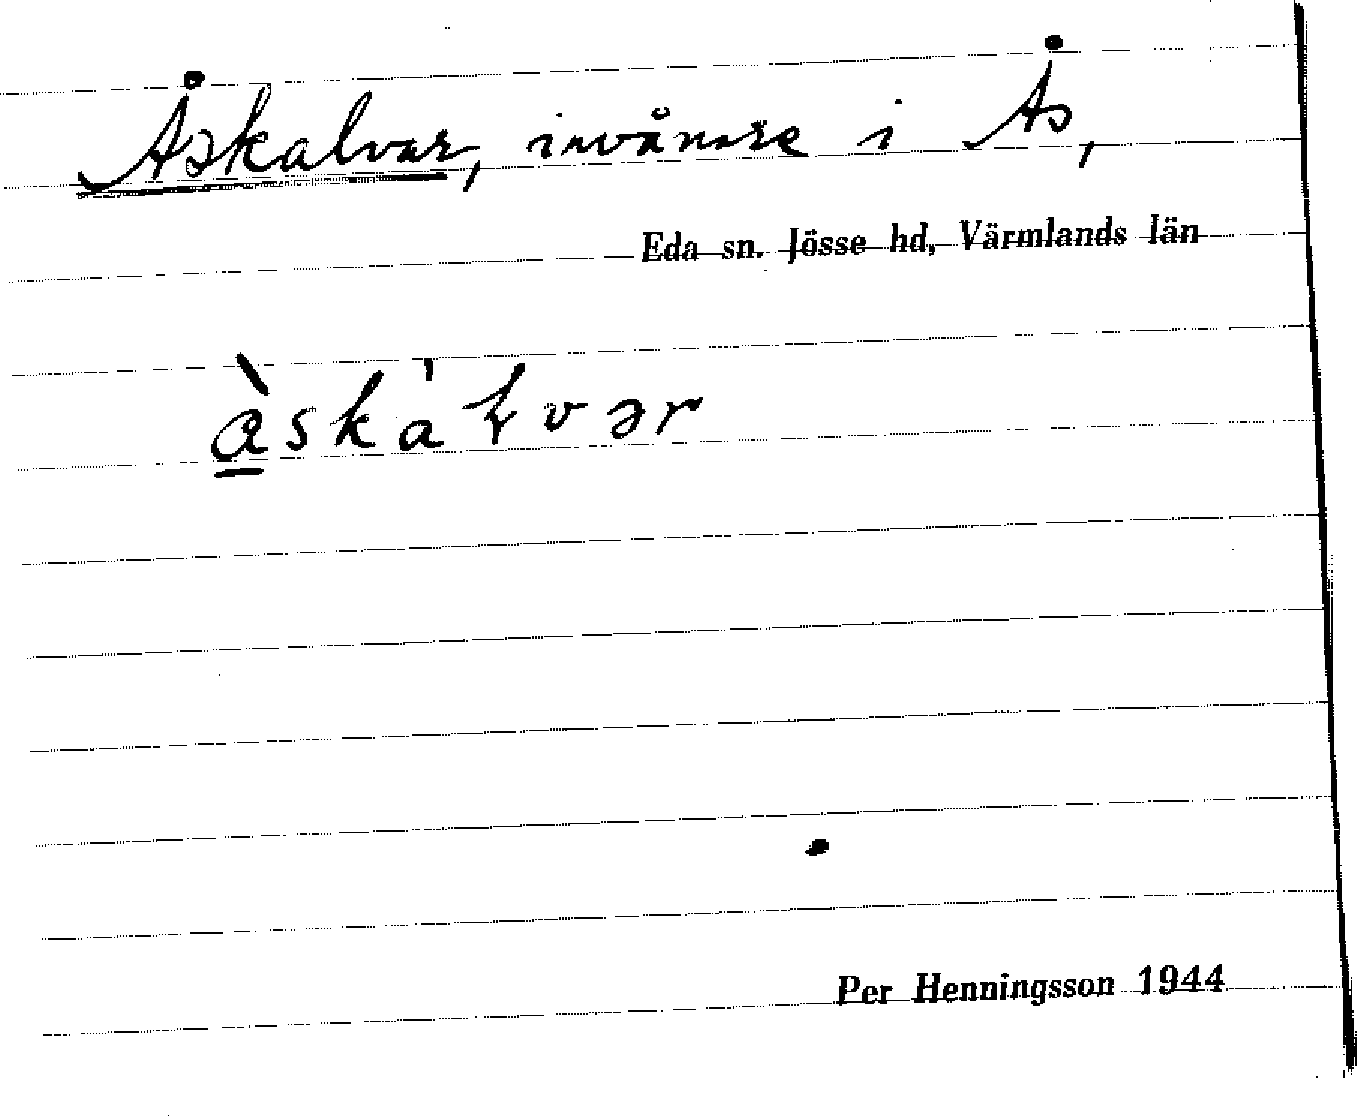 Åskalvar, invånare i Ås,
Eda sn. Jösse hd, Värmlands län
à̱skàɽvər
Per Henningsson 1944